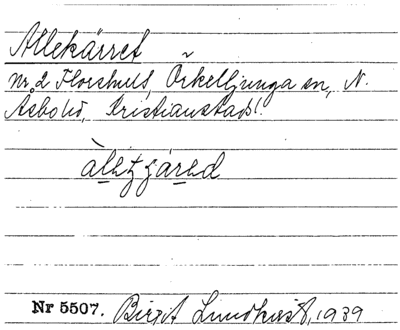 Allekärret
nr 2 Florshult, Örkelljunga sn, N.
Åsbo hd, Kristianstads l.
Nr 5507. Birgit Lundkvist, 1939